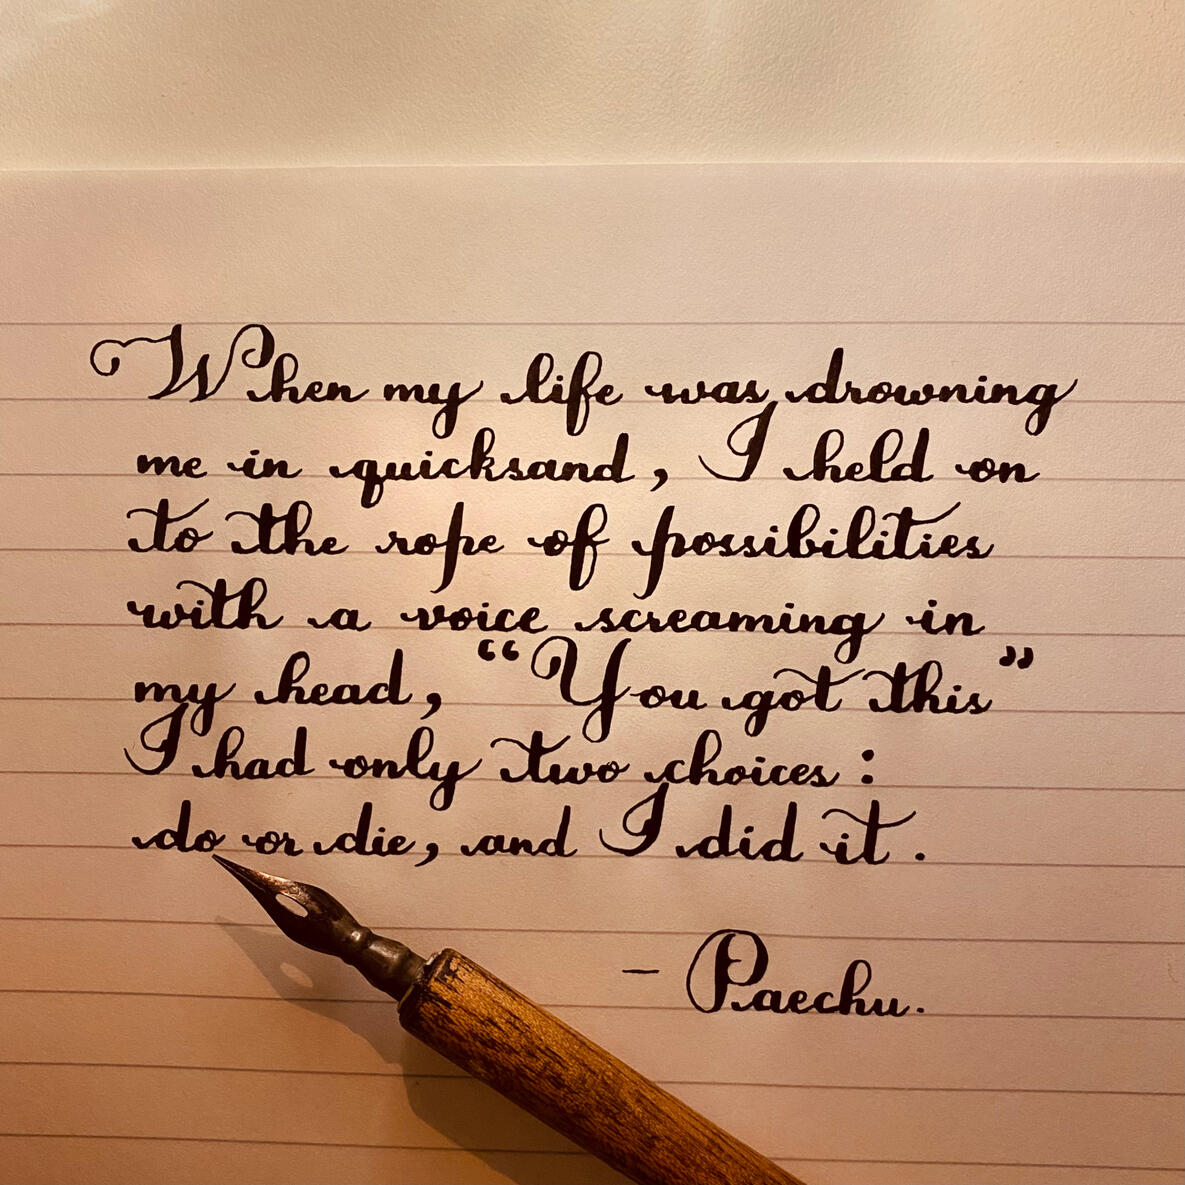 When my life was drowning
me in quicksand, I held on
to the rope of possibilities
with a voice screaming in
my head, “You got this”
I had only two choices:
do or die, and I did it.
- Paechu.